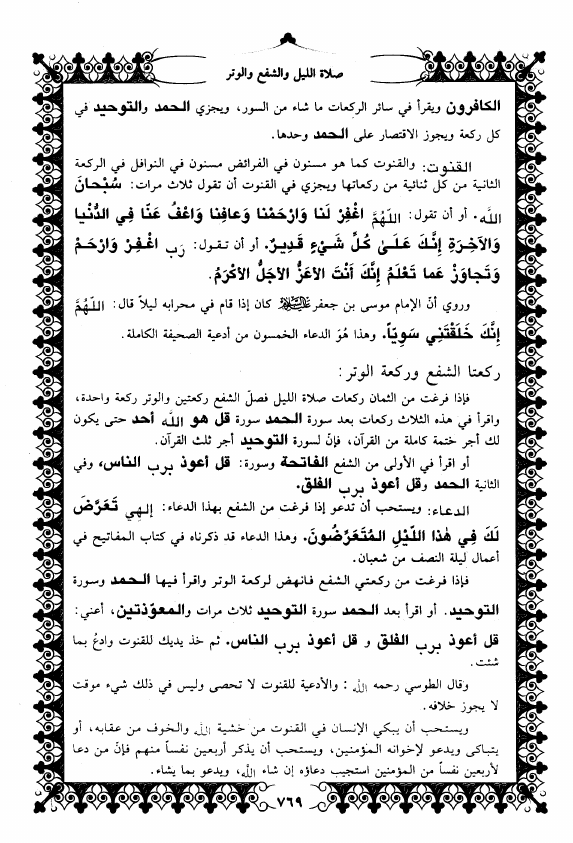 صلاة الليل والشفع والوتر
الكافرون ويقرأ في سائر الركعات ما شاء من السور، ويجزي الحمد والتوحيد في
كل ركعة ويجوز الاقتصار على الحمد وحدها.
القنوت: والقنوت كما هو مسنون في الفرائض مسنون في النوافل في الركعة
الثانية من كل ثنائية من ركعاتها ويجزي في القنوت أن تقول ثلاث مرات: سُبْحانَ
اللَّه. أو أن تقول: اللَّهُمَّ اغْفِرْ لَنا وَارْحَمْنا وَعافِنا وَاعْفُ عَنّا فِي الدُّنْيا
وَالآخِرَةِ إِنَّكَ عَلـىٰ كُلِّ شَيْءٍ قَدِيرٌ. أو أن تـقـول: رَبِ اغْـفِـرْ وَارْحَـمْ
وَتَجاوَزْ عَما تَعْلَمُ إِنَّكَ أَنْتَ الأَعَزُّ الأَجَلُّ الأَكْرَمُ.
وروي أنّ الإمام موسى بن جعفر عليه السلام كان إذا قام في محرابه ليلاً قال: اللَّهُمَّ
إِنَّكَ خَلَقْتَنِي سَوِيّاً. وهذا هُوَ الدعاء الخمسون من أدعية الصحيفة الكاملة.
ركعتا الشفع وركعة الوتر:
فإذا فرغت من الثمان ركعات صلاة الليل فصلّ الشفع ركعتين والوتر ركعة واحدة،
واقرأ في هذه الثلاث ركعات بعد سورة الحمد سورة قل هو اللَّه أحد حتى يكون
لك أجر ختمة كاملة من القرآن، فإنّ لسورة التوحيد أجر ثلث القرآن.
أو اقرأ في الأولى من الشفع الفاتحة وسورة: قل أعوذ برب الناس، وفي
الثانية الحمد وقل أعوذ برب الفلق.
الدعاء: ويستحب أن تدعو إذا فرغت من الشفع بهذا الدعاء: إلهي تَعَرَّضَ
لَكَ فِي هٰذا اللَّيْلِ المُتَعَرِّضُونَ. وهذا الدعاء قد ذكرناه في كتاب المفاتيح في
أعمال ليلة النصف من شعبان.
فإذا فرغت من ركعتي الشفع فانهض لركعة الوتر واقرأ فيها الحمد وسورة
التوحيد. أو اقرأ بعد الحمد سورة التوحيد ثلاث مرات والمعوّذتين، أعني:
قل أعوذ برب الفلق و قل أعوذ برب الناس. ثم خذ يديك للقنوت وادعُ بما
شئت.
وقال الطوسي رحمه اللَّه: والأدعية للقنوت لا تحصى وليس في ذلك شيء موقت
لا يجوز خلافه.
ويستحب أن يبكي الإنسان في القنوت من خشية اللَّه والخوف من عقابه، أو
يتباكى ويدعو لإخوانه المؤمنين، ويستحب أن يذكر أربعين نفساً منهم فإنّ من دعا
لأربعين نفساً من المؤمنين استجيب دعاؤه إن شاء اللَّه، ويدعو بما يشاء.
٧٦٩